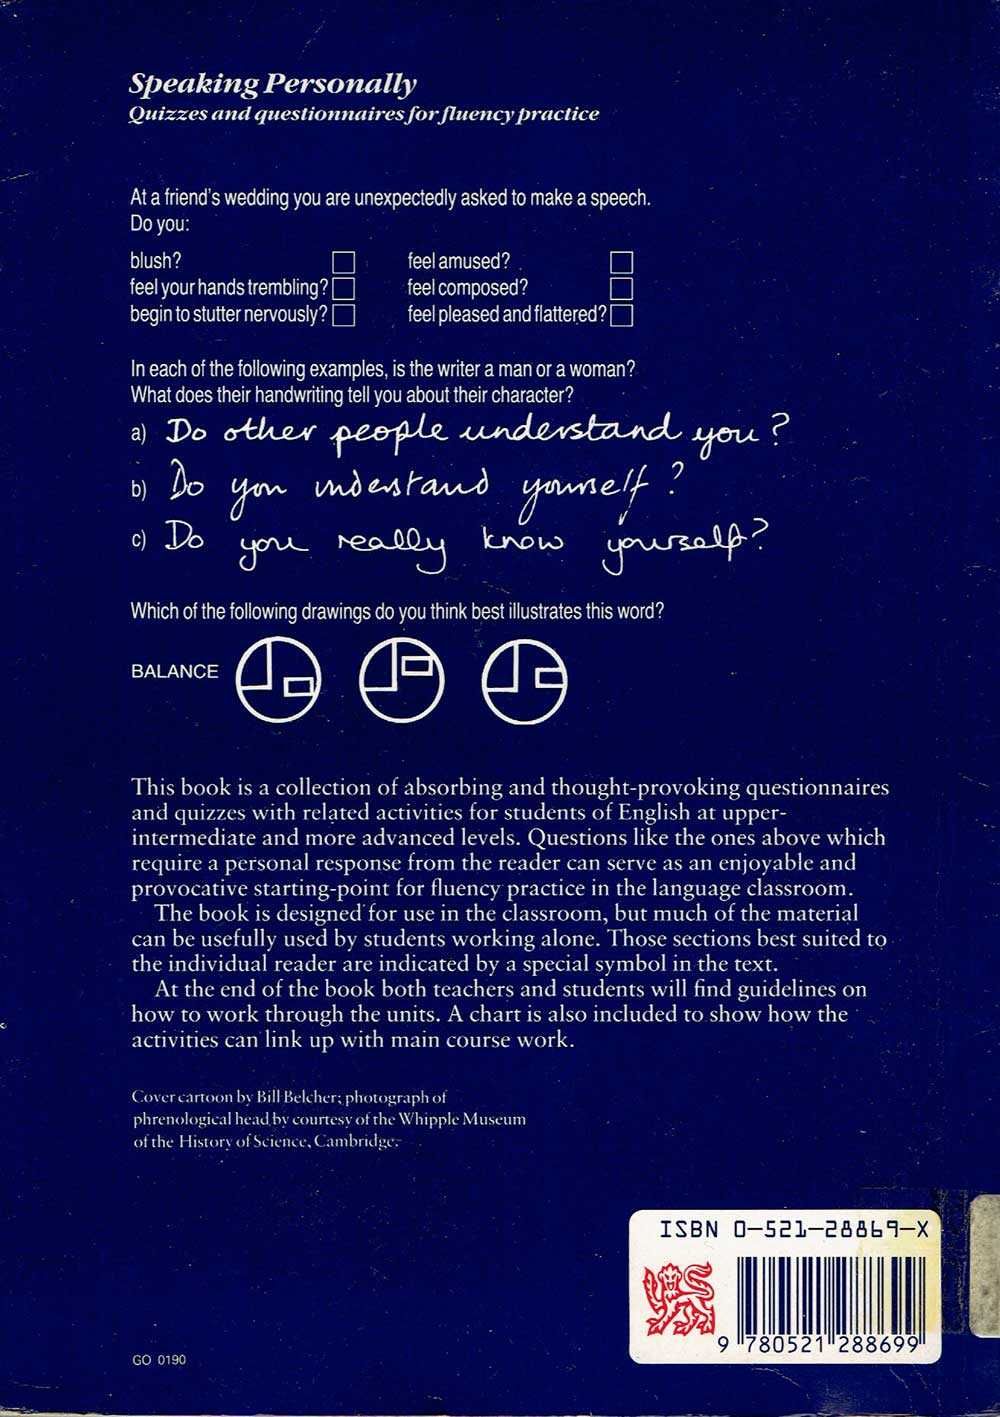 Speaking Personally
Quizzes and questionnaires for fluency practice
At a friend's wedding you are unexpectedly asked to make a speech.
Do you:
blush? feel amused?
feel your hands trembling? feel composed?
begin to stutter nervously? feel pleased and flattered?
In each of the following examples, is the writer a man or a woman?
What does their handwriting tell you about their character?
a) Do other people understand you?
b) Do you understand yourself?
c) Do you really know yourself?
Which of the following drawings do you think best illustrates this word?
BALANCE
This book is a collection of absorbing and thought-provoking questionnaires
and quizzes with related activities for students of English at upper-
intermediate and more advanced levels. Questions like the ones above which
require a personal response from the reader can serve as an enjoyable and
provocative starting-point for fluency practice in the language classroom.
The book is designed for use in the classroom, but much of the material
can be usefully used by students working alone. Those sections best suited to
the individual reader are indicated by a special symbol in the text.
At the end of the book both teachers and students will find guidelines on
how to work through the units. A chart is also included to show how the
activities can link up with main course work.
Cover cartoon by Bill Belcher; photograph of
phrenological head by courtesy of the Whipple Museum
of the History of Science, Cambridge.
ISBN 0-521-28869-X
9 780521 288699
GO 0190